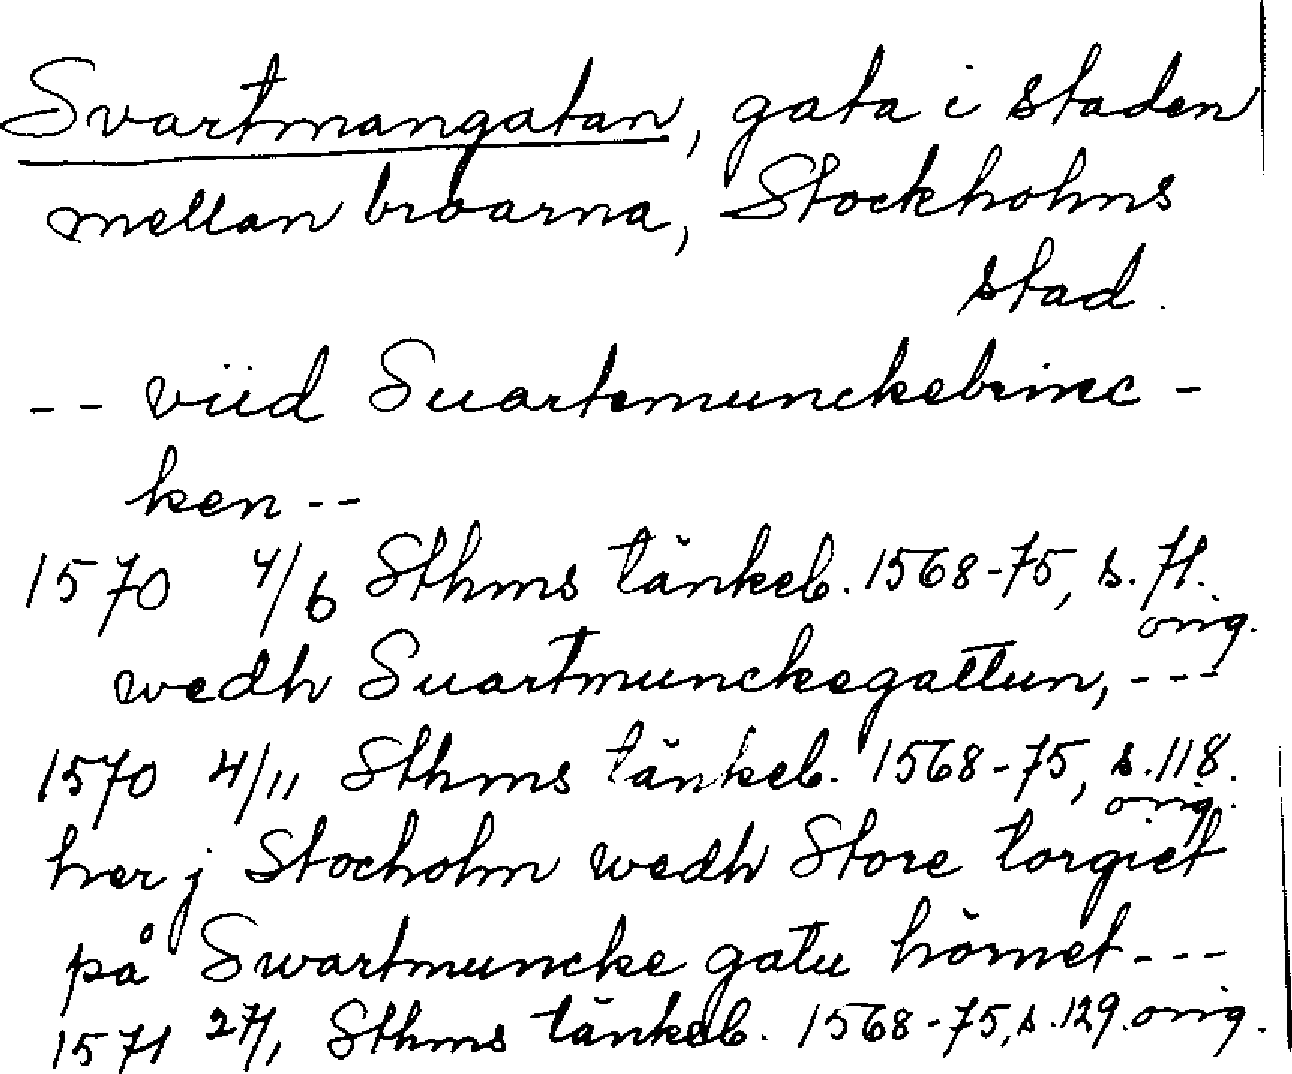 Svartmangatan, gata i staden
mellan broarna, Stockholms
stad.
-- viid Suartemunckebrinc-
ken --
1570 4/6 Sthms tänkeb. 1568-75, s. 71.
orig.
wedh Suartmunckegattun, ---
1570 4/11 Sthms tänkeb. 1568-75, s. 118.
orig.
her j Stocholm wedh Store torgiet
på Swartmuncke gatu hörnet ---
1571 27/1 Sthms tänkeb. 1568-75, s. 129. orig.